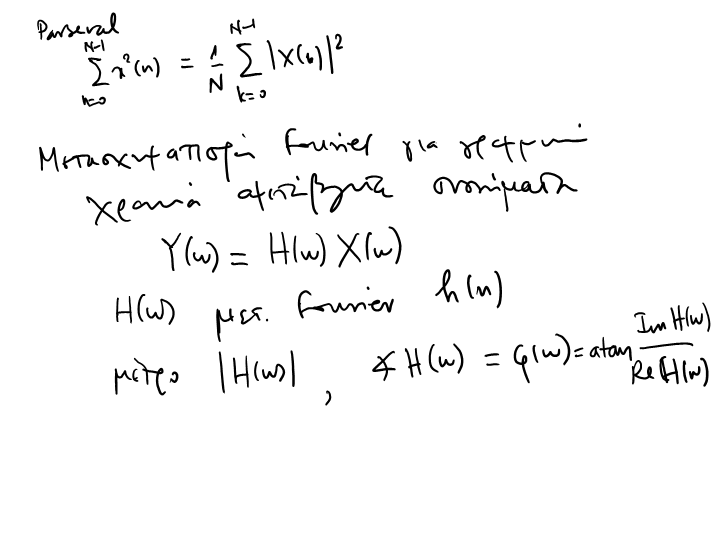 Parseval
\sum_{n=0}^{N-1} x^2(n) = \frac{1}{N} \sum_{k=0}^{N-1} |X(k)|^2
Μετασχηματισμοί Fourier για γραμμικά
χρονικά αμετάβλητα συστήματα
Y(ω) = H(ω) X(ω)
H(ω) μετ. Fourier h(n)
μέτρο |H(ω)| , ∡ H(ω) = φ(ω) = atan \frac{Im H(ω)}{Re H(ω)}